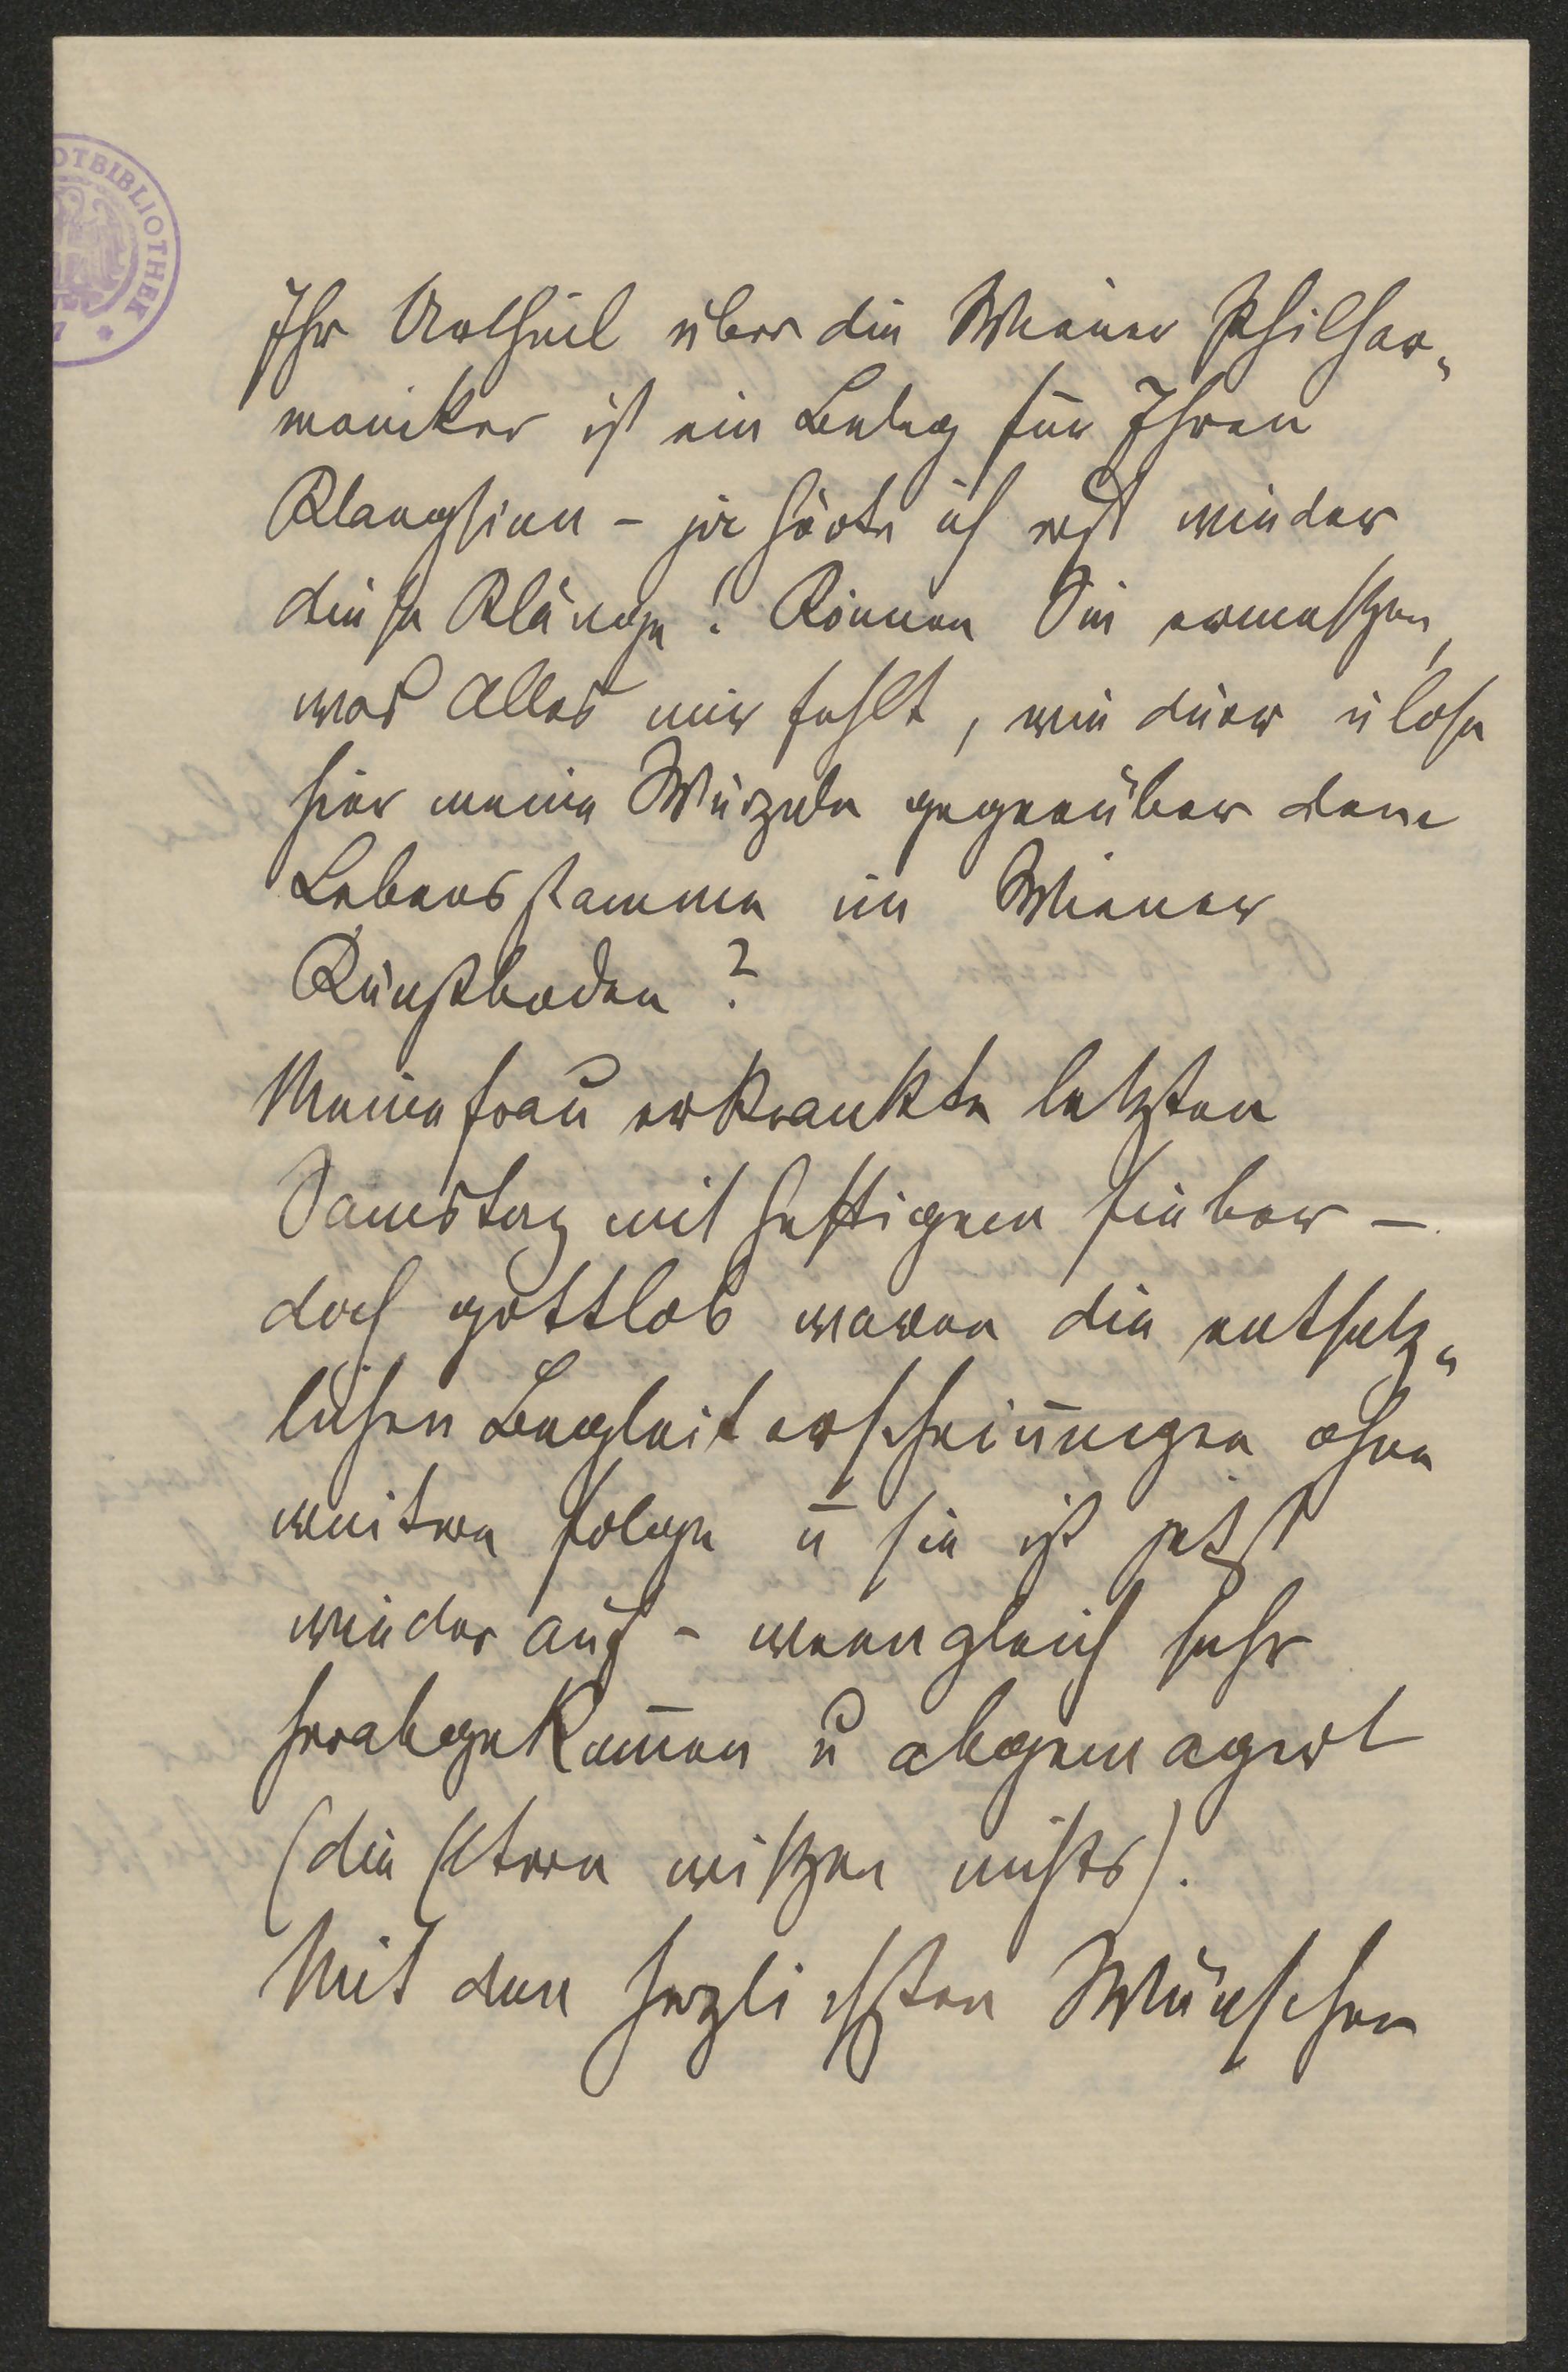 OTBIBLIOTHEK
Ihr Urtheil über die Wiener Philhar„
moniker ist ein Beleg für Ihren
Klangsinn – ja hörte ich erst wieder
diese Klänge! Können Sie ermeßen,
was Alles mir fehlt, wie dürr u lose
hier meine Wurzeln gegenüber dem
Lebensstamme im Wiener
Kunstboden?
Meine Frau erkrankte letzten
Samstag mit heftigem Fieber –
doch gottlob waren die entsetz„
lichen Begleiterscheinungen ohne
weitere Folge u sie ist jetzt
wieder auf – wenngleich sehr
herabgekom̅en u abgemagert
(die Eltern wißen nichts).
Mit den herzlichsten Wünschen